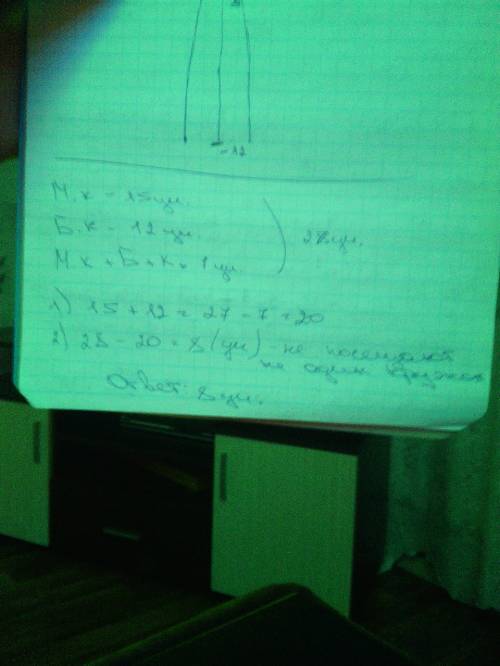 -12
М.к - 15 уч.
Б.к - 12 уч.
28 уч.
М.к + Б + к = 7 уч
1) 15 + 12 = 27 - 7 = 20
2) 28 - 20 = 8 (уч) - не посещают
не один кружок
Ответ: 8 уч.